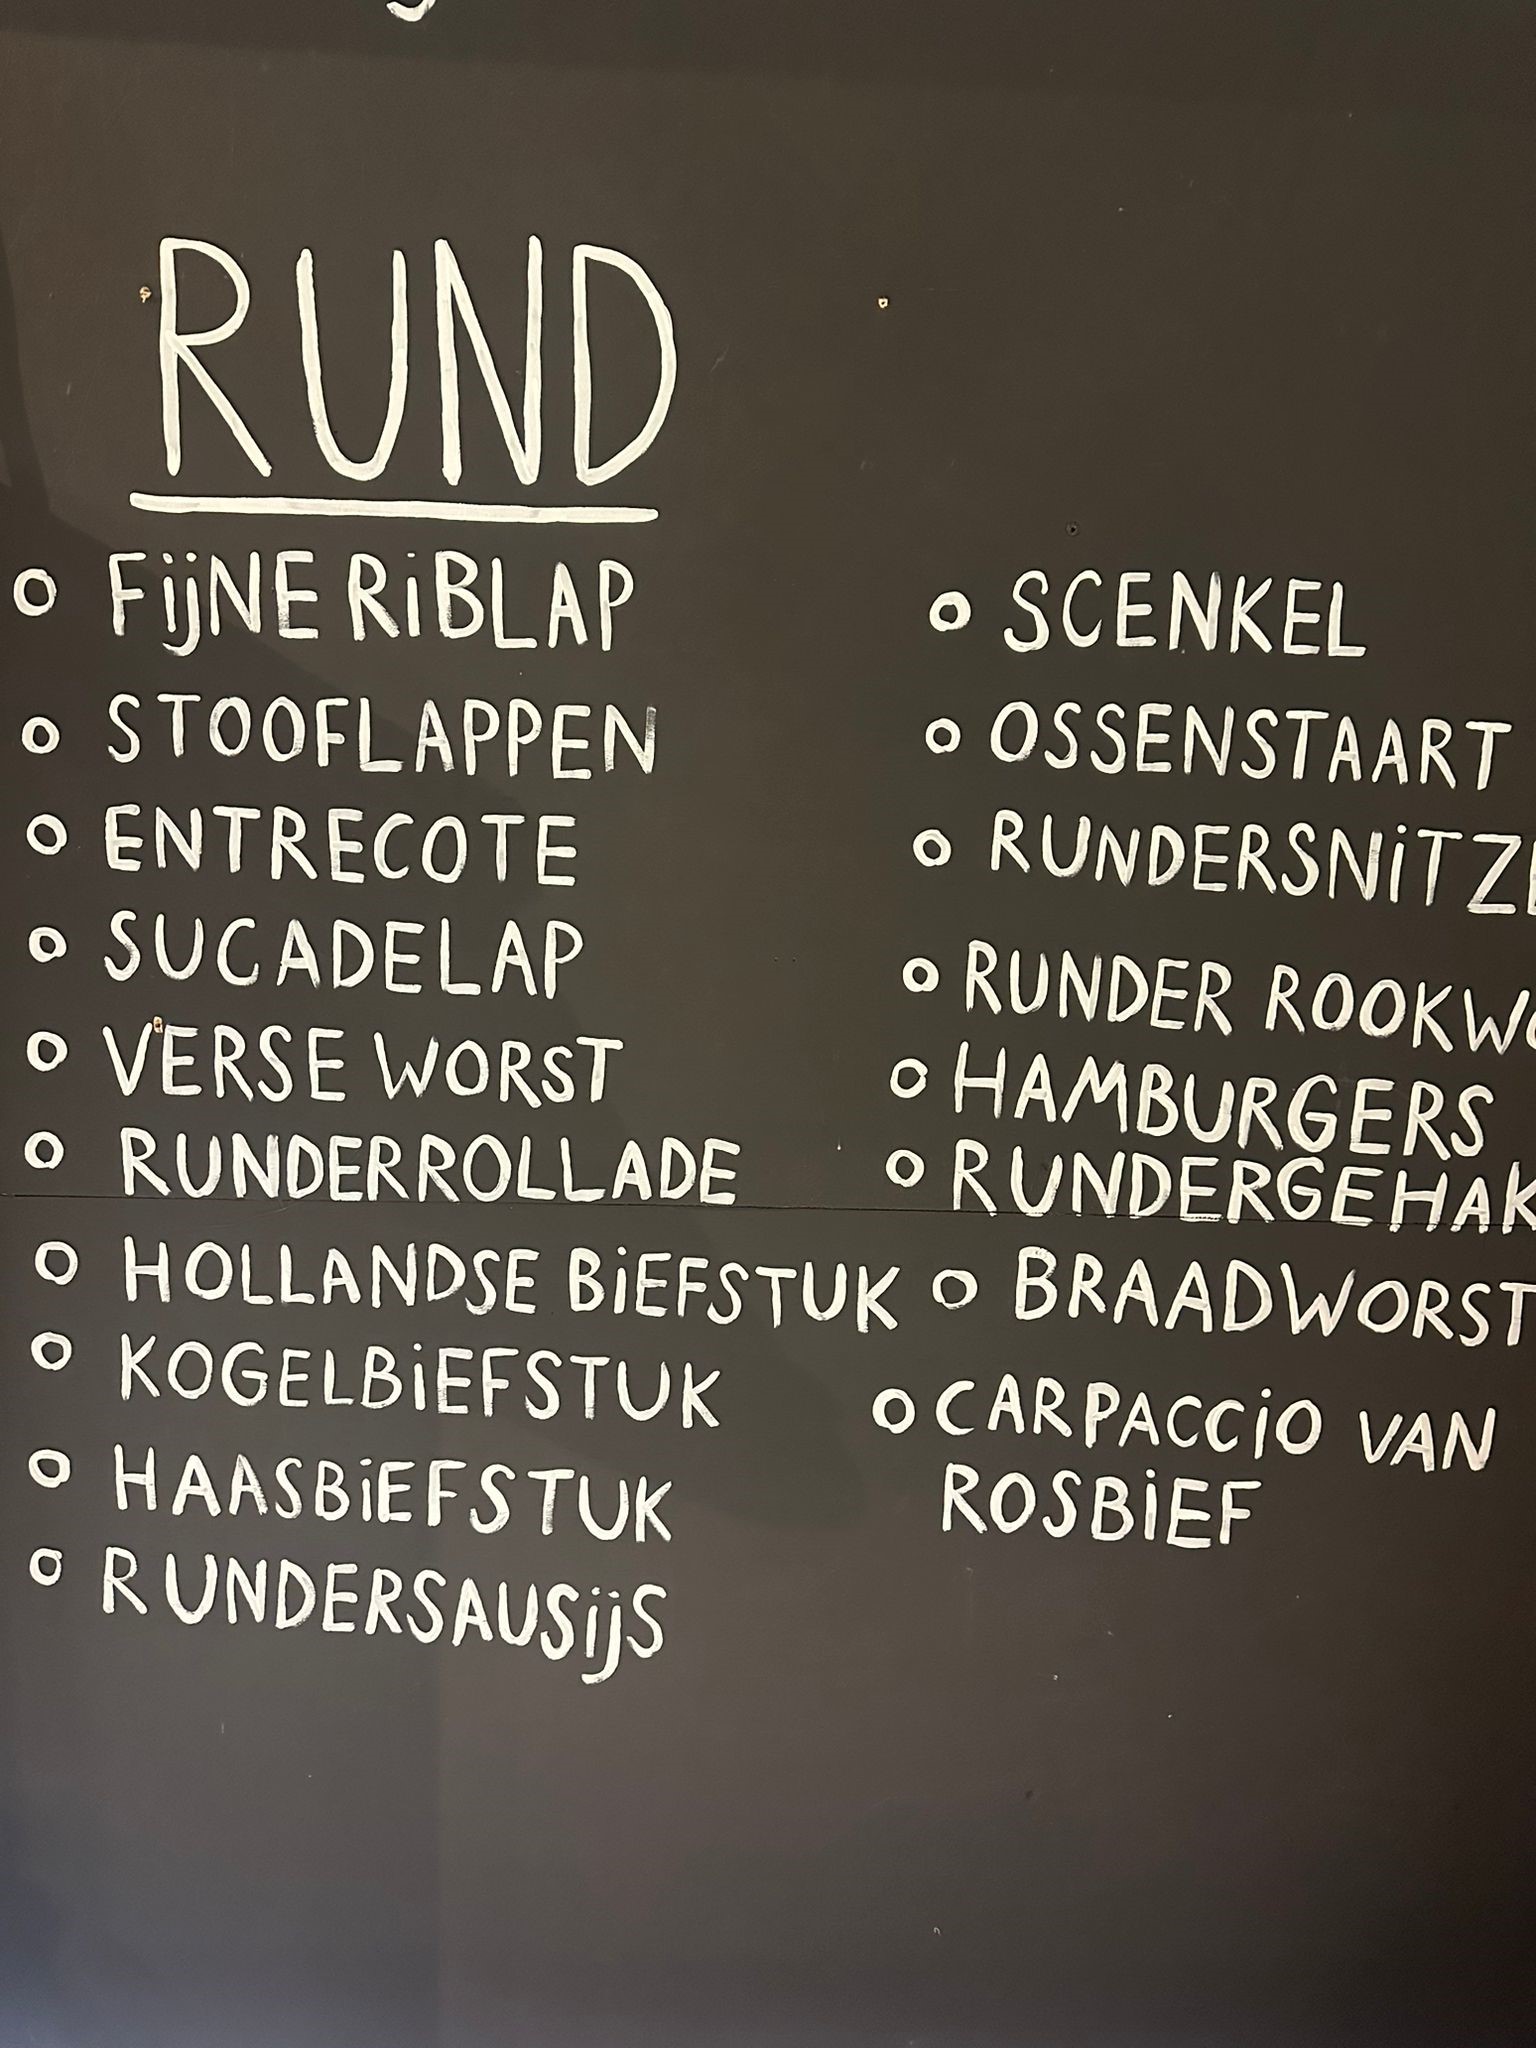 RUND
FijNE RiBLAP
STOOFLAPPEN
ENTRECOTE
SUCADELAP
VERSE WORST
RUNDERROLLADE
HOLLANDSE BiEFSTUK
KOGELBiEFSTUK
HAASBiEFSTUK
RUNDERSAUSijS
SCENKEL
OSSENSTAART
RUNDERSNiTZE
RUNDER ROOKWO
HAMBURGERS
RUNDERGEHAK
BRAADWORST
CARPACCiO VAN
ROSBiEF